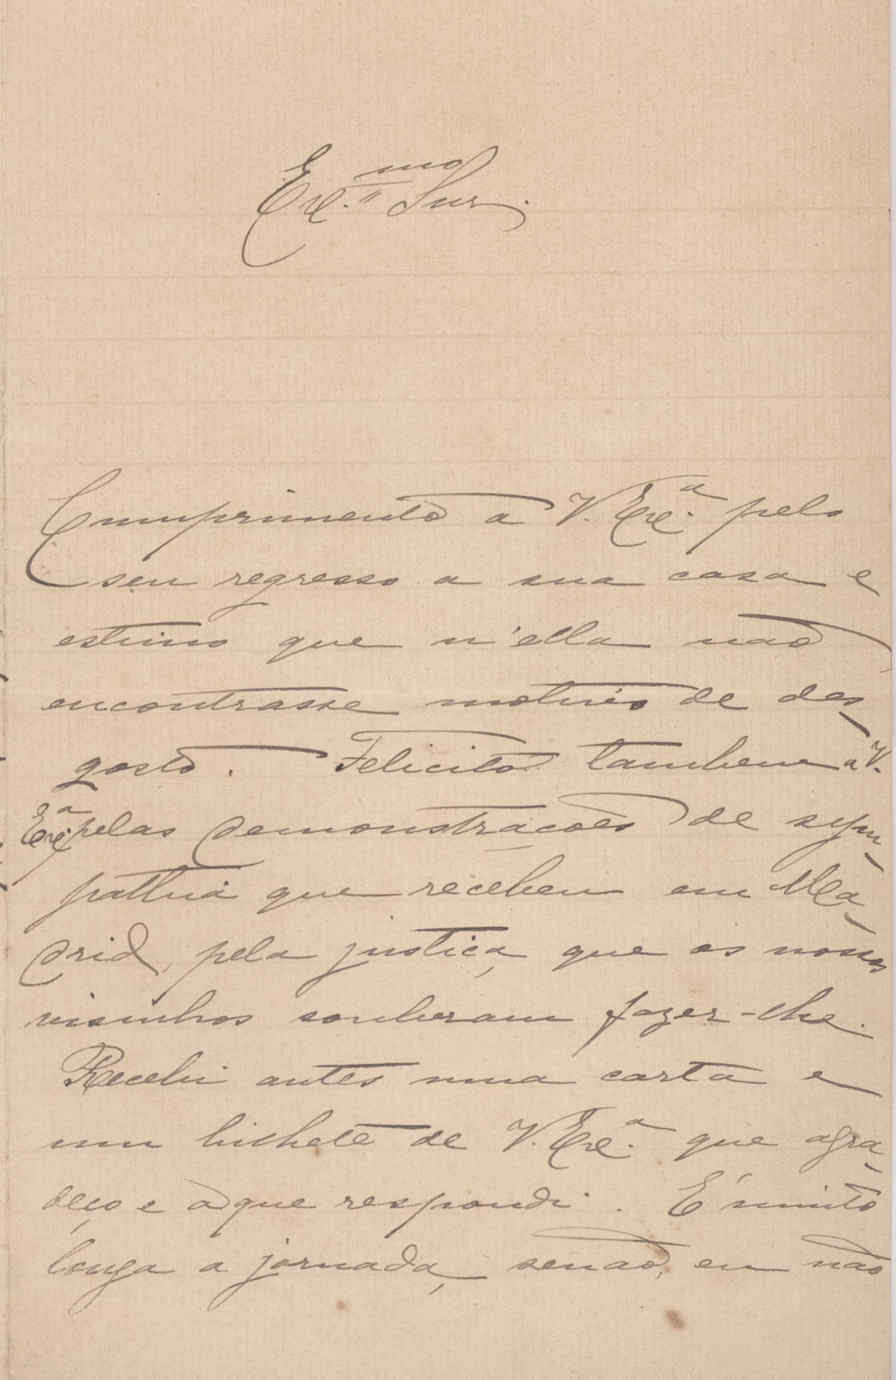 Ex.mo Snr.
Cumprimento a V. Ex.a pelo
seu regresso a sua casa e
estimo que n'ella não
encontrasse motivo de des-
gosto. Felicito tambem a V.
Ex.a pelas demonstrações de sym-
pathia que recebeu em Ma-
drid, pela justiça, que os nossos
visinhos souberam fazer-lhe.
Recebi antes uma carta e
um bilhete de V. Ex.a que agra-
deço e a que respondi. É muito
longa a jornada, senão, eu não